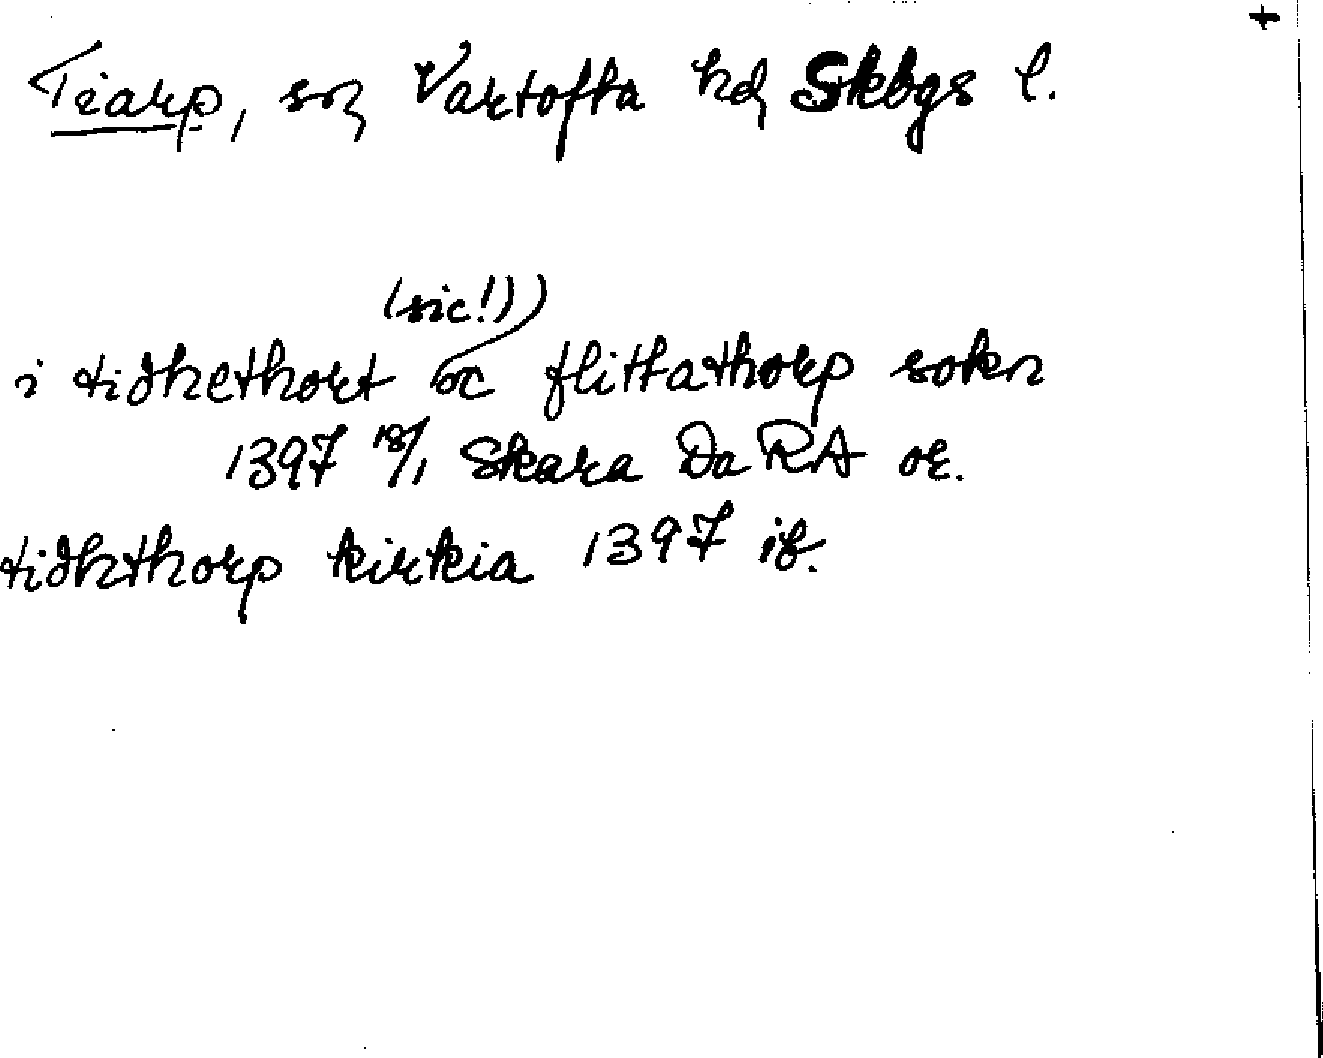 +
Tiarp, sn Vartofta hd Skbgs l.
(sic!))
i tidhethort oc flittathorp sokn
1397 18/1 Skara Da RA or.
tidhthorp kirkia 1397 ib.